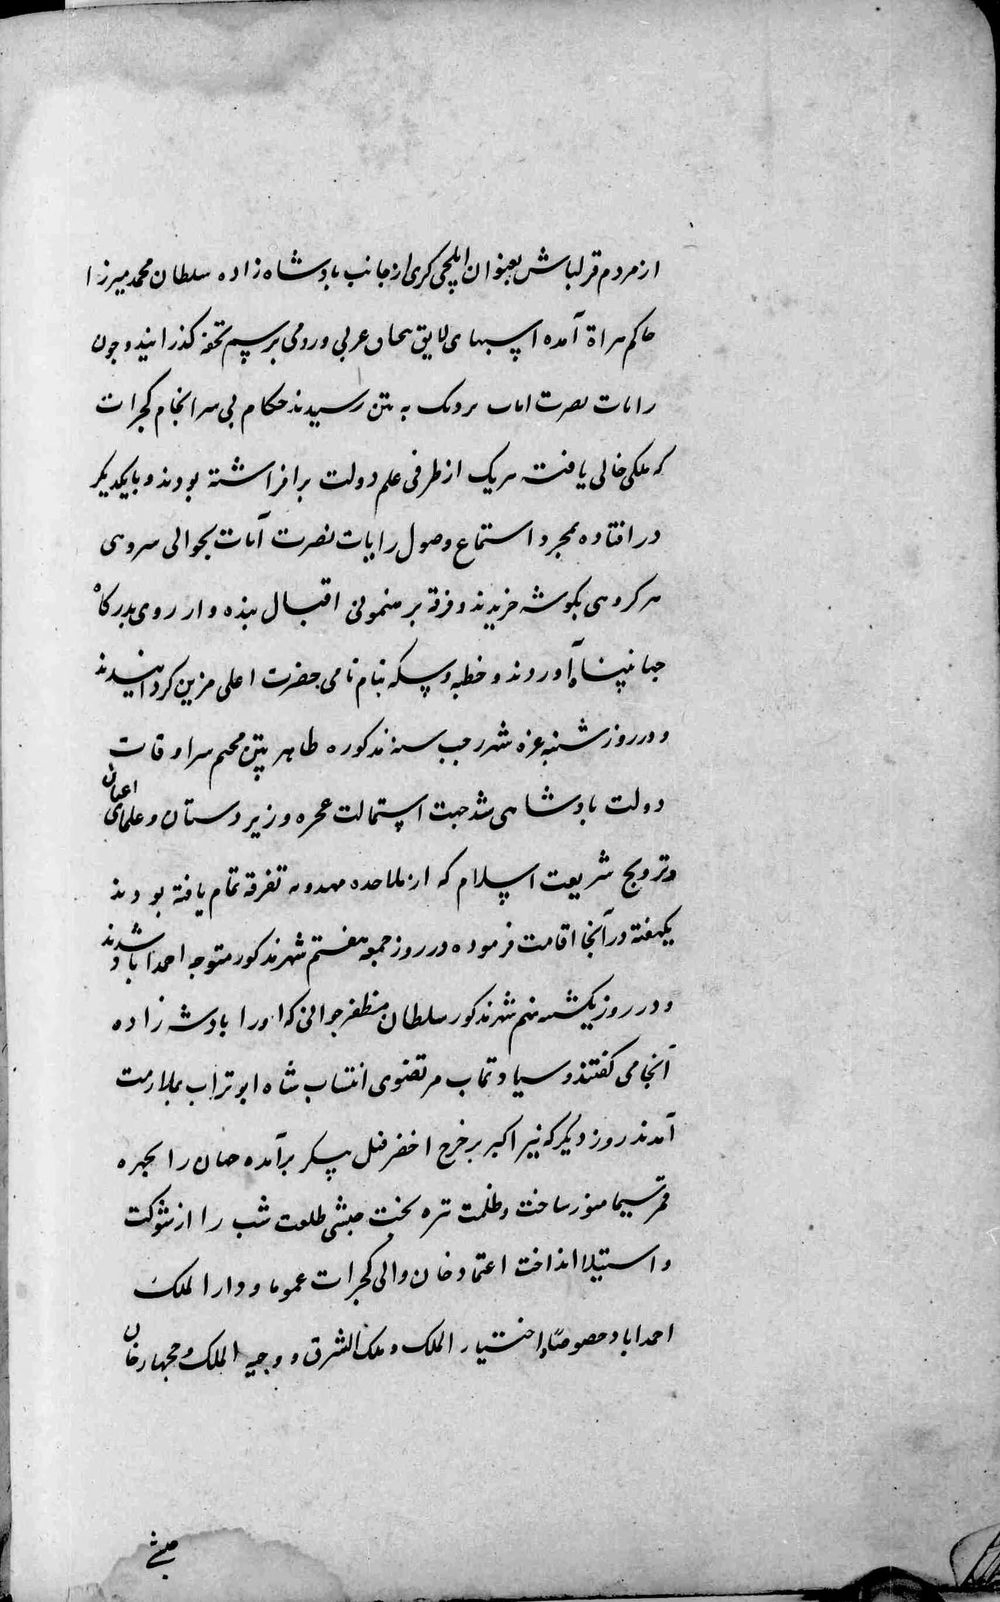 از مردم قزلباش بعنوان ایلچی کری از جانب بادشاه زاده سلطان محمد میرزا
حاکم هراة آمده اسپهای لایق عربی و رومی برسم تحفه کذرانیند و چون
رایات نصرت ایات نزدیک به پتن رسیدند حکام بی سرانجام کجرات
که ملکی خالی یافته هریک از طرفی علم دولت برافراشته بودند و بایکدیکر
درافتاده بمجرد استماع وصول رایات نصرت آیات بحوالی سروهی
هر کروهی بکوشه خزیدند و فرقه برهنمونی اقبال بنده وار روی بدرکاه
جهانپناه آوردند و خطبه و سکه بنام نامی حضرت اعلی مزین کردانیدند
و در روز شنبه غره شهر رجب سنه مذکوره ظاهر پتن مخیم سراوقات
دولت بادشاهی شد جهت استمالت عجزه و زیردستان و علمای اعیان
و ترویج شریعت اسلام که از ملاحده مهدویه تفرقه تمام یافته بودند
یکهفته در آنجا اقامت فرموده در روز جمعه هفتم شهر مذکور متوجه احمداباد شدند
و در روز یکشنبه نهم شهر مذکور سلطان مظفر جوانی که اورا بادشه زاده
آنجا می کفتند و سیادتماب مرتضوی انتساب شاه ابوتراب بملازمت
آمدند روز دیکر که نیر اکبر برخرج اخضر فیل پیکر برآمده جهان را بچهره
قمر سیما منور ساخت و ظلمت تیره بخت حبشی طلعت شب را از شوکت
و استیلا انداخت اعتماد خان والی کجرات عموما و دارالملک
احمداباد خصوصاً و اختیار الملک و ملک الشرق و وجیه الملک و مجهارخان
حبشی